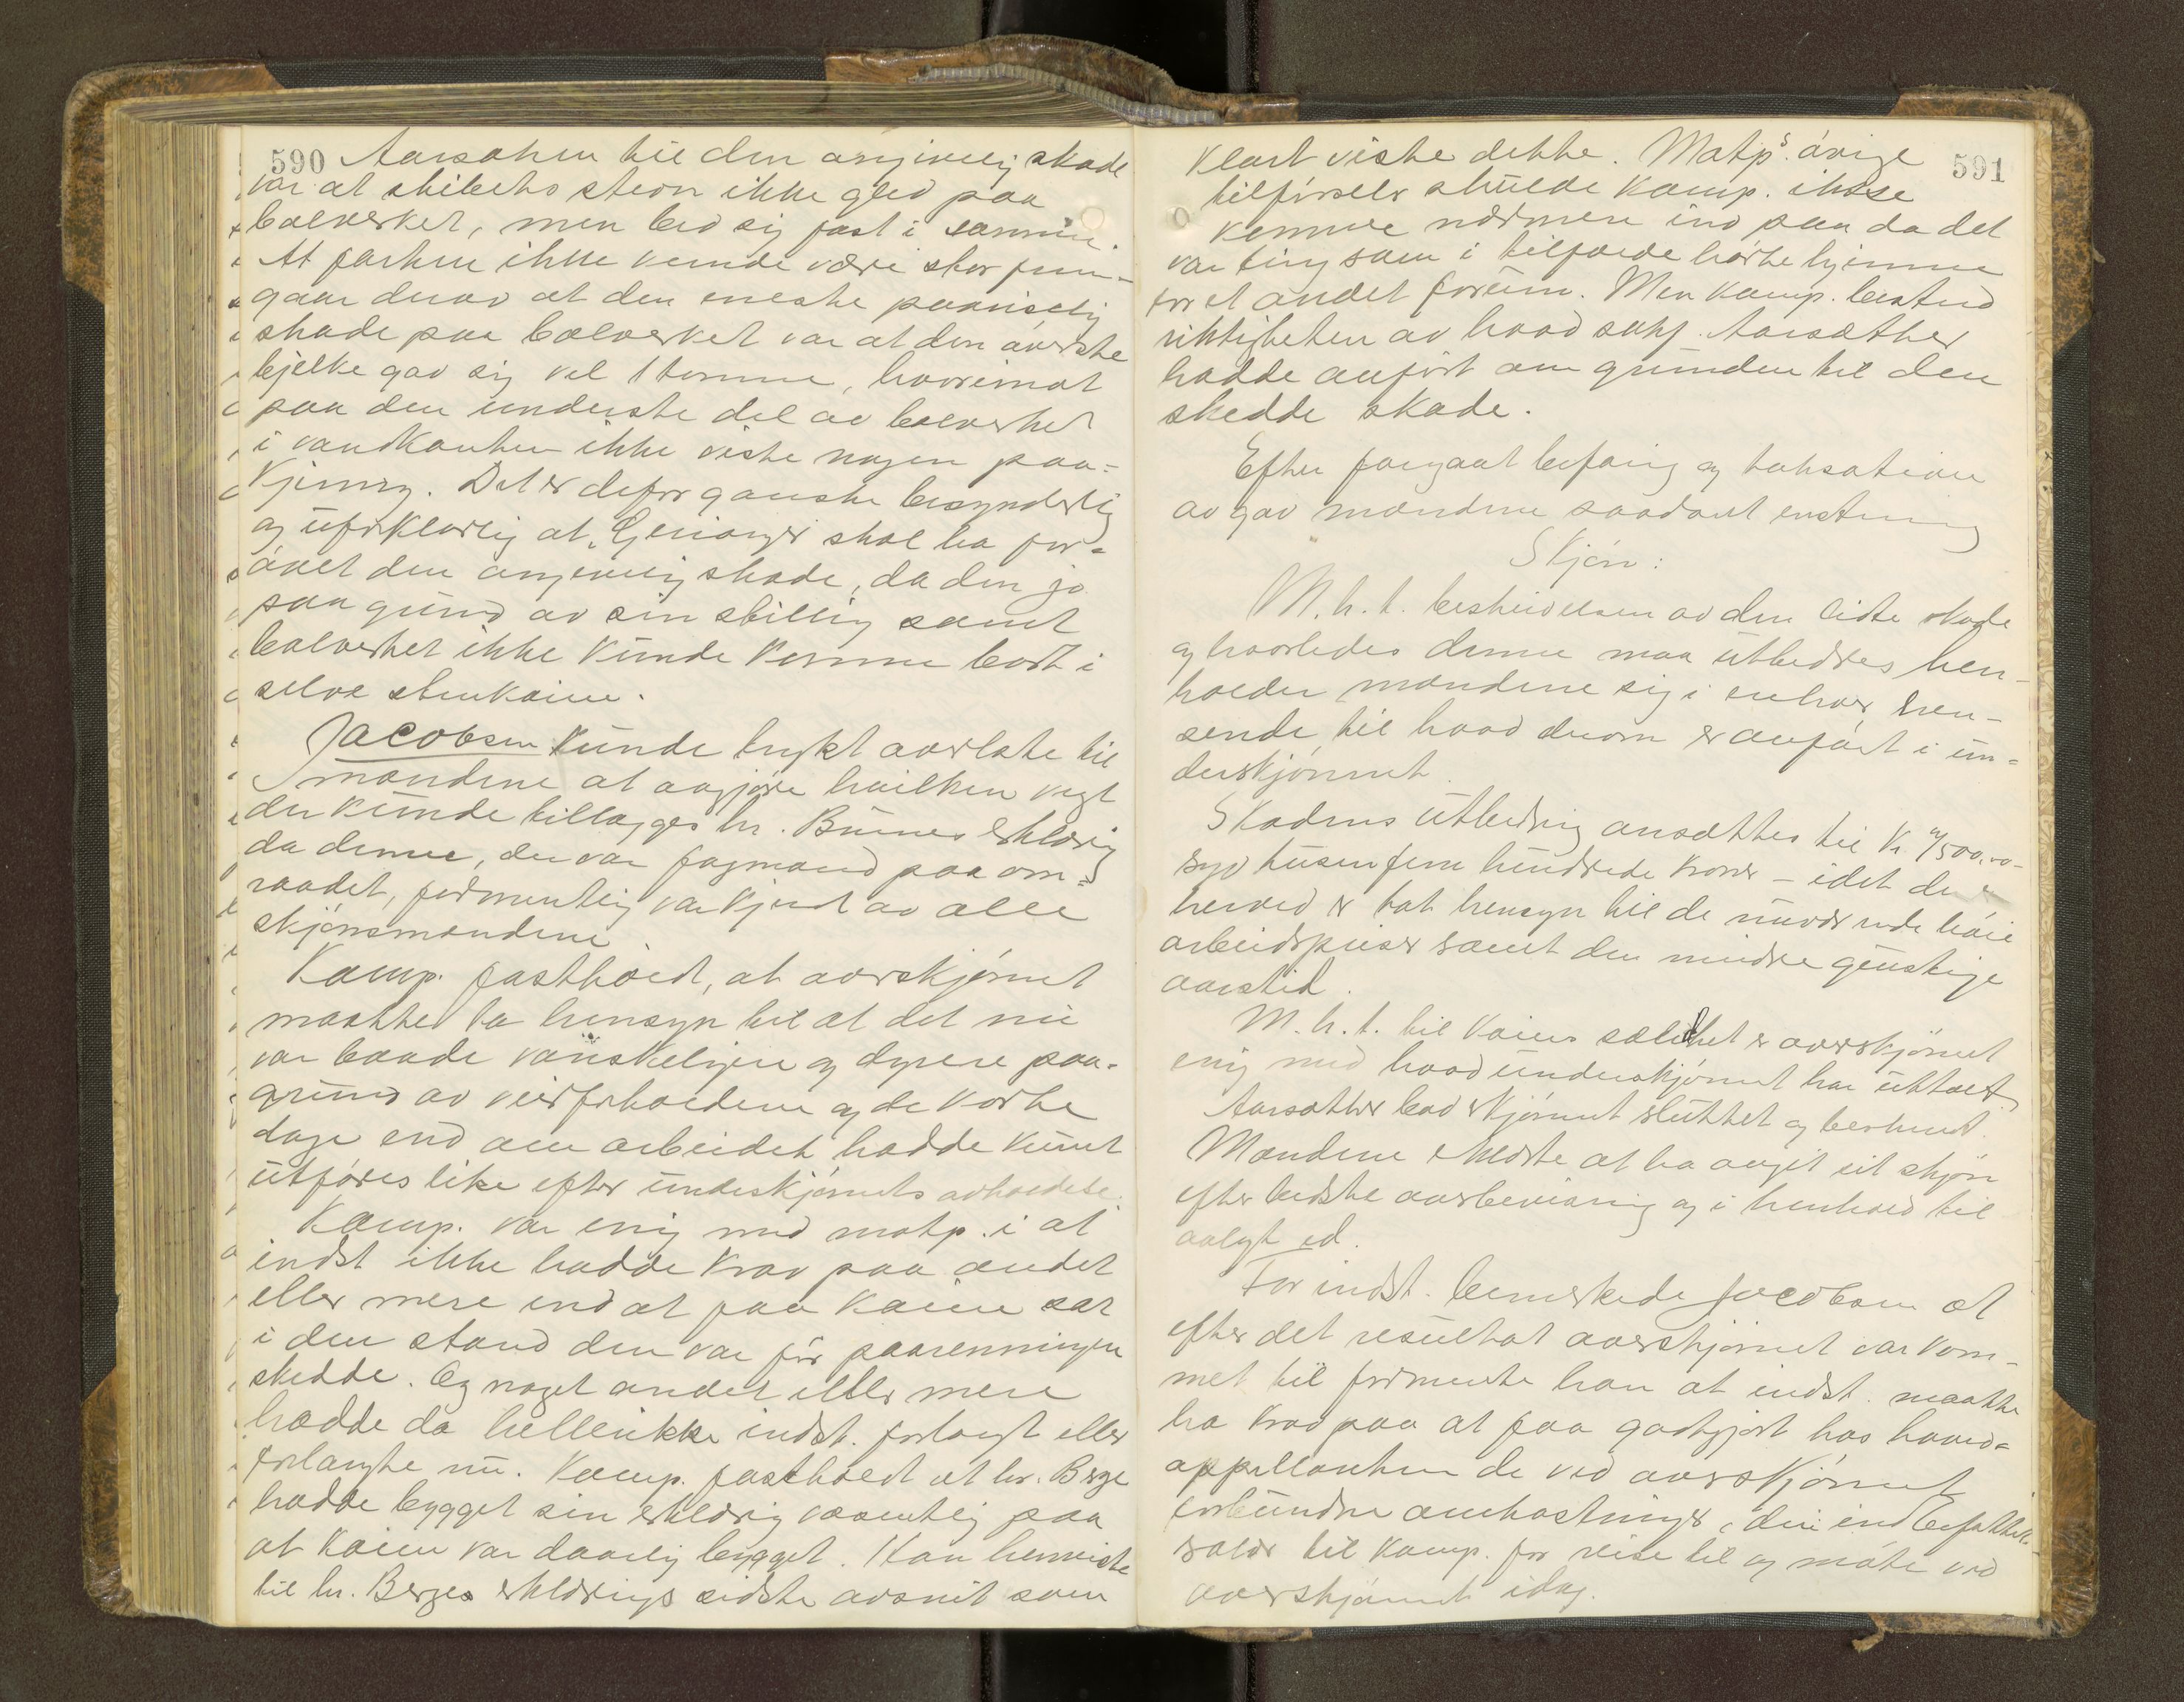 590 Aarsaken til den angivelig skade
var at skibets stevn ikke gled paa
bolverket, men bed sig fast i samme.
At farten ikke kunde være stor frem-
gaar derav at den eneste paaviselig
skade paa bolverket var at den øverste
bjelke gav sig vel 1 tomme, hvorimot
paa den underste del av bolverket
i vandkanten ikke viste nogen paa-
kjenning. Det er defor ganske besynderlig
og uforklarlig at "Geiranger skal ha for-
øvet den angivelig skade, da den jo
paa grund av sin stilling samt
bolverket ikke kunde komme bort i
selve stenkaien.
Jacobsen kunde trykt overlate til
mændene at avgjøre hvilken vegt
der kunde tillægges hr. Bunes erklæring
da denne, der var fagmand paa om-
raadet, formentlig var kjendt av alle
skjønsmændene.
Kamp. fastholdt, at overskjønnet
maatte ta hensyn til at det nu
var baade vanskeligere og dyrere paa-
grund av veirforholdene og de korte
dage end om arbeidet hadde kunnet
utføres like efter underskjønnets avholdelse.
Kamp. var enig med motp. i at
indst ikke hadde krav paa andet
eller mere end at faa kaien sat
i den stand den var før paarenningen
skedde. Og noget andet eller mere
hadde da hellerikke indst. forlangt eller
forlangte nu. Kamp. fastholdt at hr. Berge
hadde bygget sin erklæring væsentlig paa
at kaien var daarlig bygget. Han henviste
til hr. Berges erklærings sidste avsnit som
591
klart viste dette. Motp's øvrige
tilførsels skulde Kamp. ikke
komme nærmere ind paa da det
var ting som i tilfælde hørte hjemme
for et andet forum. Men Kamp. bestred
riktigheten av hvad sakf. Aarsæther
hadde anført om grunden til den
skedde skade.
Efter foregaat befaring og taksation
avgav mændene saadant enstemmig
Skjøn:
M.h.t. beskrivelsen av den lidte skade
og hvorledes denne maa utbedres hen-
holder mændene sig i enhver hen-
seende til hvad derom er anført i un-
derskjønnet.
Skadens utbedring ansættes til Kr. 7500.00-
syv tusen fem hundrede kroner - idet der
herved er tat hensyn til de nuværende høie
arbeidspriser samt den mindre gunstige
aarstid.
M.h.t. til kaiens soliditet er overskjønnet
enig med hvad underskjønnet har uttalt.
Aarsæther bad skjønnet sluttet og beskrevet.
Mændene erklærte at ha avgit sit skjøn
efter bedste overbevisning og i henhold til
avlagt ed.
For indst. bemerkede Jacobsen at
efter det resultat overskjønnet var kom-
met til formente han at indst. maatte
ha krav paa at faa godtgjort hos hoved-
appellanten de ved overskjønnet
forbundne omkostninger, deri indbefattet
salær til Kamp. for reise til og møte ved
overskjønnet idag.